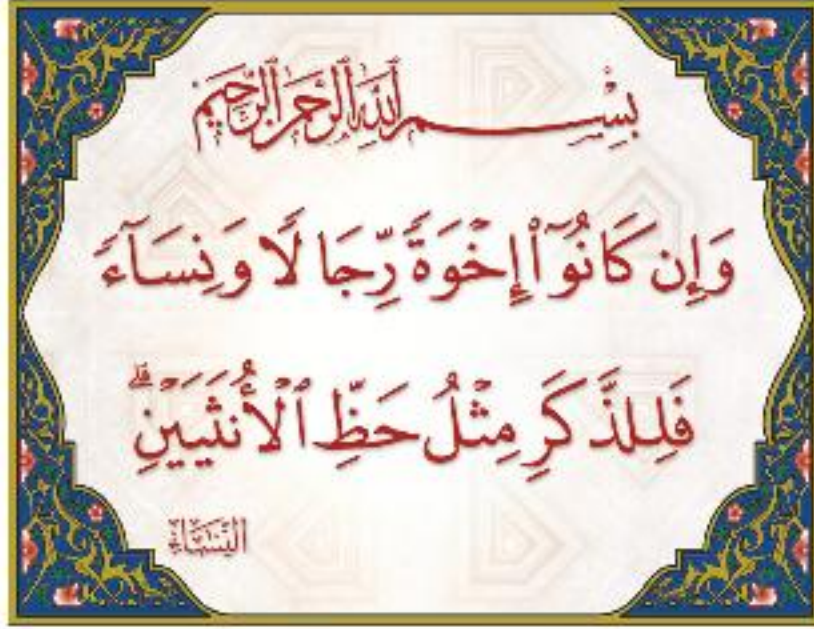 بِسْمِ ٱللَّهِ ٱلرَّحْمَٰنِ ٱلرَّحِيمِ
وَإِن كَانُوٓا۟ إِخْوَةً رِّجَالًا وَنِسَآءً
فَلِلذَّكَرِ مِثْلُ حَظِّ ٱلْأُنثَيَيْنِ ۗ
النِّسَاءِ